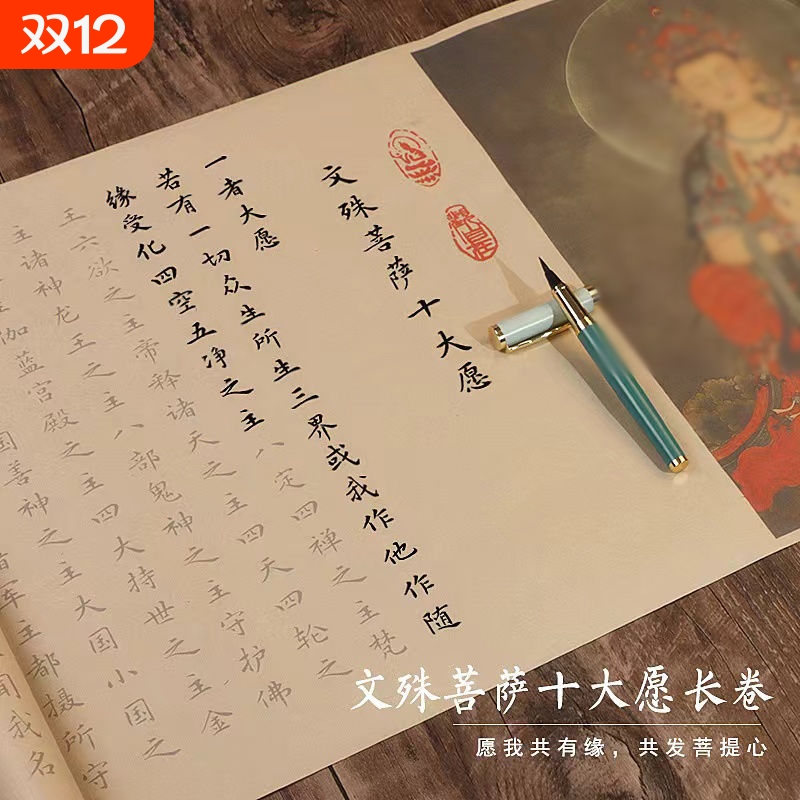 双12
文殊菩萨十大愿
一者大愿
若有一切众生所生三界或我作他作随
缘受化四空五净之主八定四禅之主梵
王六欲之主帝释诸天之主四天四轮之
主诸神龙王之主八部鬼神之主守护佛
主伽蓝宫殿之主四大持世之主金
国善神之主大国小国之
军主都摄所守
闻我名
文殊菩萨十大愿长卷
愿我共有缘，共发菩提心